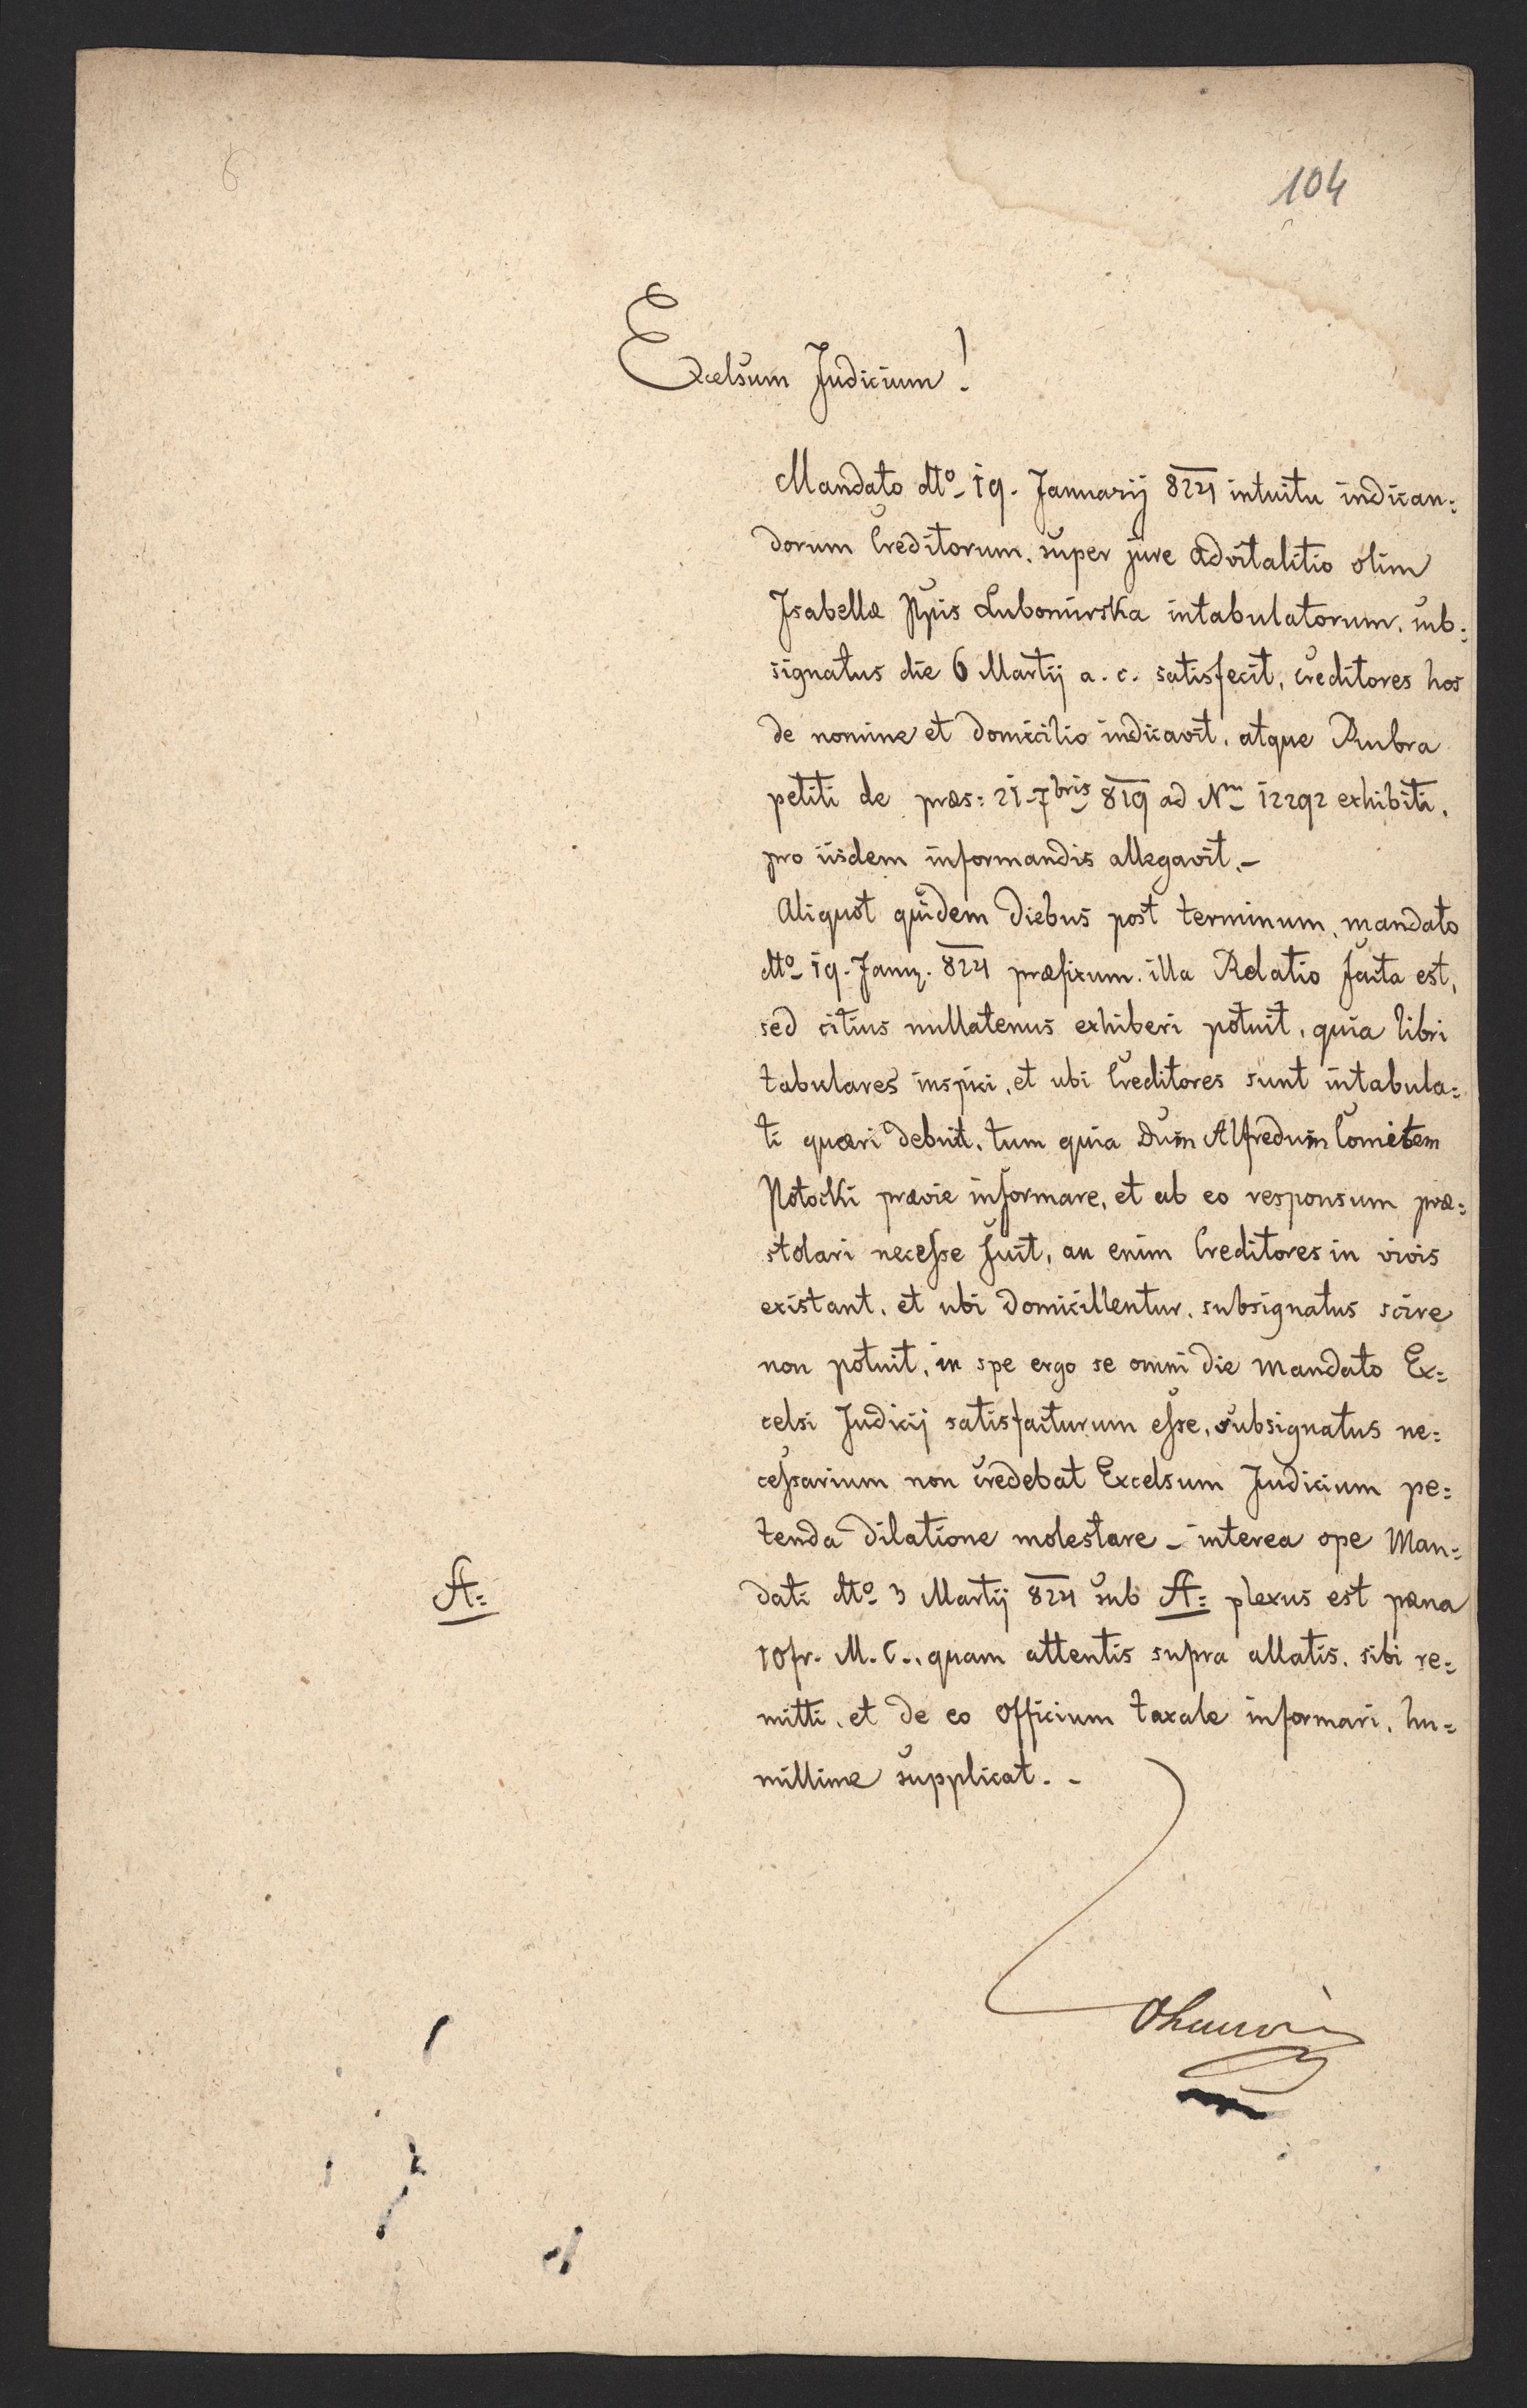 6
104
Excelsum Judicium!
Mandato dto 19. Januarij 824 intuitu indican=
dorum Creditorum, super jure advitalitio olim
Isabellæ Ppis Lubomirska intabulatorum, sub=
signatus die 6 Martij a. c. satisfecit, creditores hos
de nomine et domicilio indicavit, atque Rubra
petiti de præs: 21-7bris 819 ad Nm 12292 exhibiti,
pro iisdem informandis allegavit.-
Aliquot quidem diebus post terminum, mandato
dto 19. Janu. 824 præfixum, illa Relatio facta est,
sed citius nullatenus exhiberi potuit, quia libri
tabulares inspici, et ubi Creditores sunt intabula=
ti quæri debuit, tum quia Dum Alfredum Comitem
Potocki prævie informare, et ab eo responsum præ=
stolari necesse fuit, an enim Creditores in vivis
existant, et ubi domicillentur, subsignatus scire
non potuit, in spe ergo se omni die mandato Ex=
celsi Judicij satisfacturum esse, subsignatus ne=
cessarium non credebat Excelsum Judicium pe=
tenda dilatione molestare - interea ope Man=
A=
dati dto 3 Martij 824 sub A= plexus est pæna
10 fr. M. C., quam attentis supra allatis, sibi re=
mitti, et de eo Officium taxale informari, hu=
millime supplicat. -